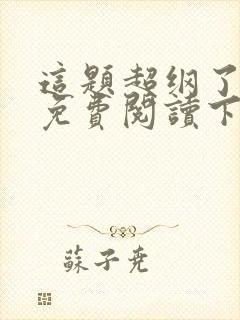 這題超纲了
免費閱讀下
蘇子尭